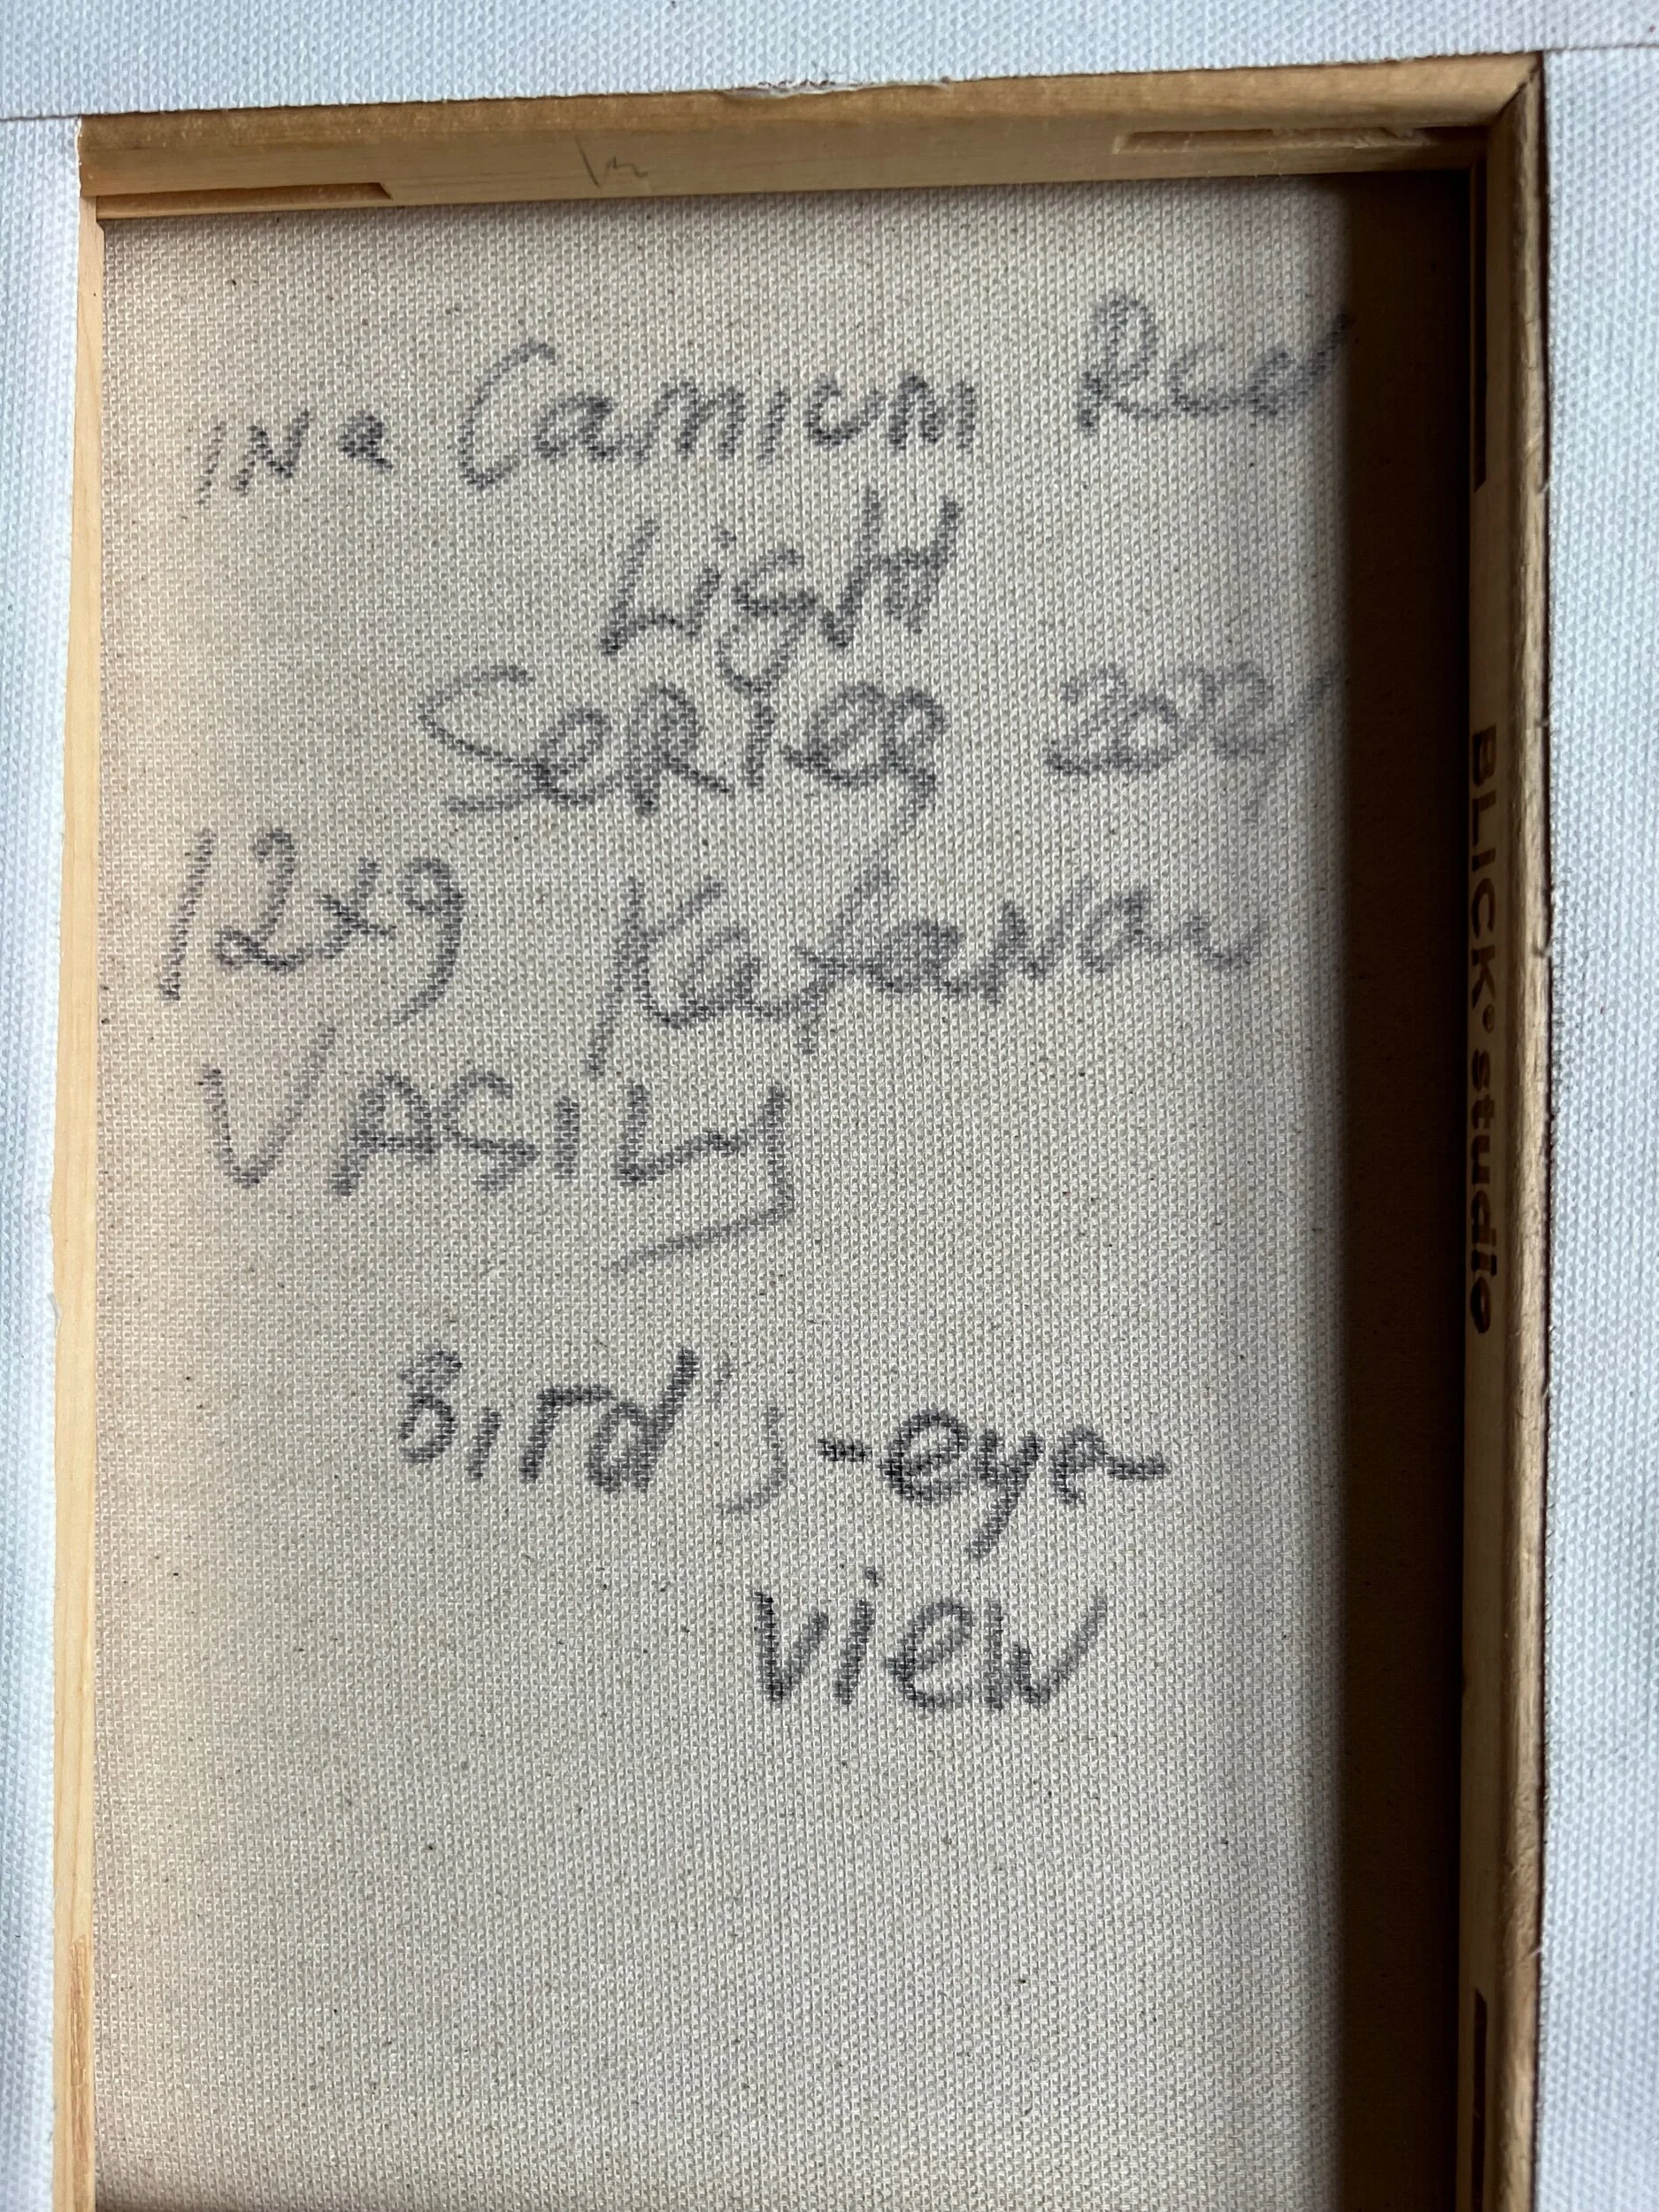 INa Camium Red
Light
Series
12x9 Kafanov
VASILY
Bird's-eye
view
BLICK® studio